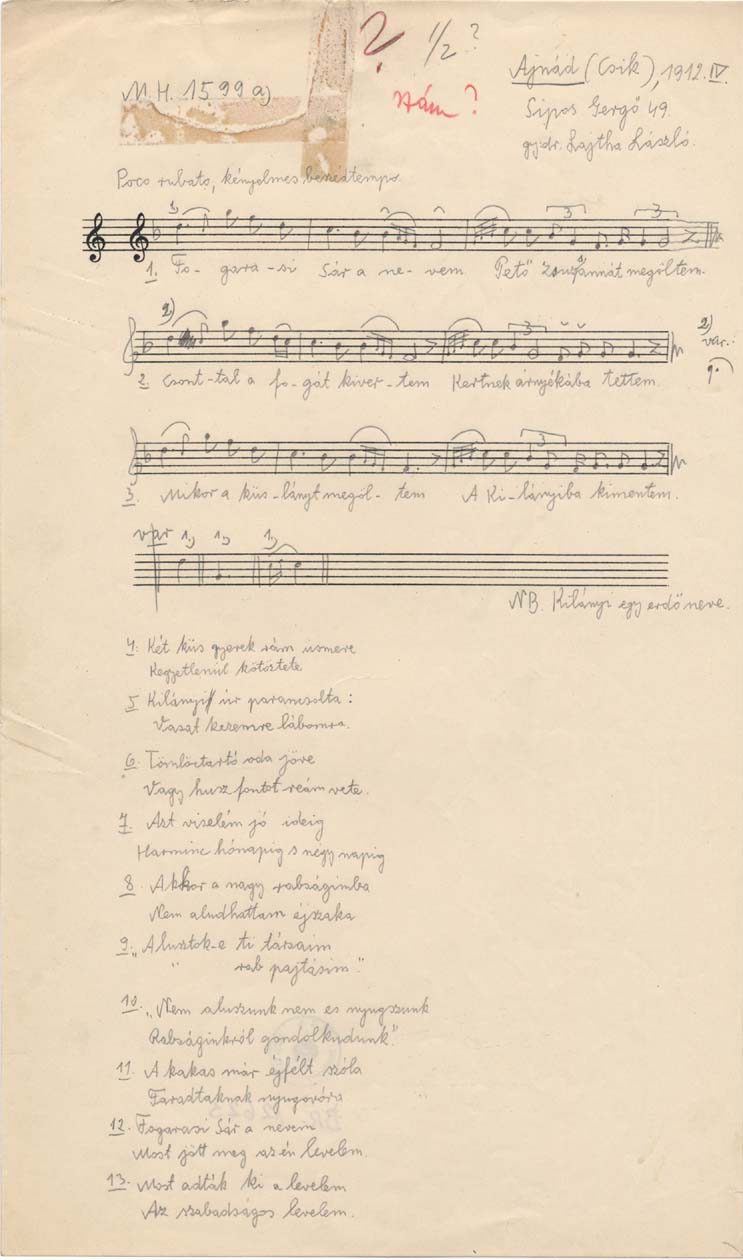 ? 1/2 ?
Ajnád (Csik), 1912. IV.
M. H. 1599 a)
szám ?
Sipos Gergő 49.
gy. dr. Lajtha László.
Poco rubato, kényelmes beszédtempo.
1) 3 3
1. Fo- gara-si Sár a ne-vem Pető Zsuzsánnát megöltem.
2) 3 2) var.:
2. Csont-tal a fo-gát kiver-tem Kertnek árnyékába tettem.
3
3. Mikor a küs-lányt megöl-tem A Ki-lányiba kimentem.
var 1) 1) 1)
NB. Kilányi egy erdő neve.
4. Két küs gyerek rám üsmere
Kegyetlenül kötöztete
5 Kilányi úr parancsolta:
Vasat kezemre lábomra.
6. Tömlöctartó oda jöve
Vagy husz fontot reám vete.
7. Azt viselém jó ideig
Harminc hónapig s négy napig
8. Akkor a nagy rabságimba
Nem aludhattam éjszaka
9. „Alusztok-e ti társaim
" rab pajtásim."
10. „Nem aluszunk nem es nyugszunk
Rabságinkról gondolkudunk."
11. A kakas már éjfélt szóla
Faradtaknak nyugovóra
12. Fogarasi Sár a nevem
Most jött meg az én levelem.
13. Most adták ki a levelem
Az szabadságos levelem.